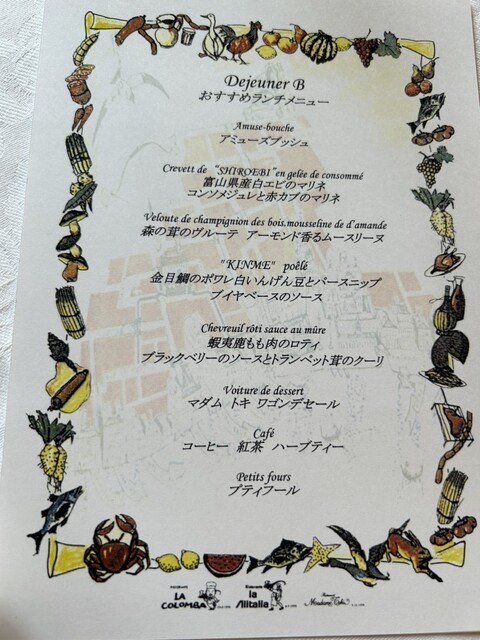 Dejeuner B
おすすめランチメニュー
Amuse-bouche
アミューズブッシュ
Crevett de "SHIROEBI" en gelée de consommé
富山県産白エビのマリネ
コンソメジュレと赤カブのマリネ
Veloute de champignion des bois.mousseline de d'amande
森の茸のヴルーテ アーモンド香るムースリーヌ
"KINME" poêlé
金目鯛のポワレ白いんげん豆とパースニップ
ブイヤベースのソース
Chevreuil rôti sauce au mûre
蝦夷鹿もも肉のロティ
ブラックベリーのソースとトランペット茸のクーリ
Voiture de dessert
マダム トキ ワゴンデセール
Café
コーヒー 紅茶 ハーブティー
Petits fours
プティフール
LA COLOMBA
la Alitalia
Madame Toki